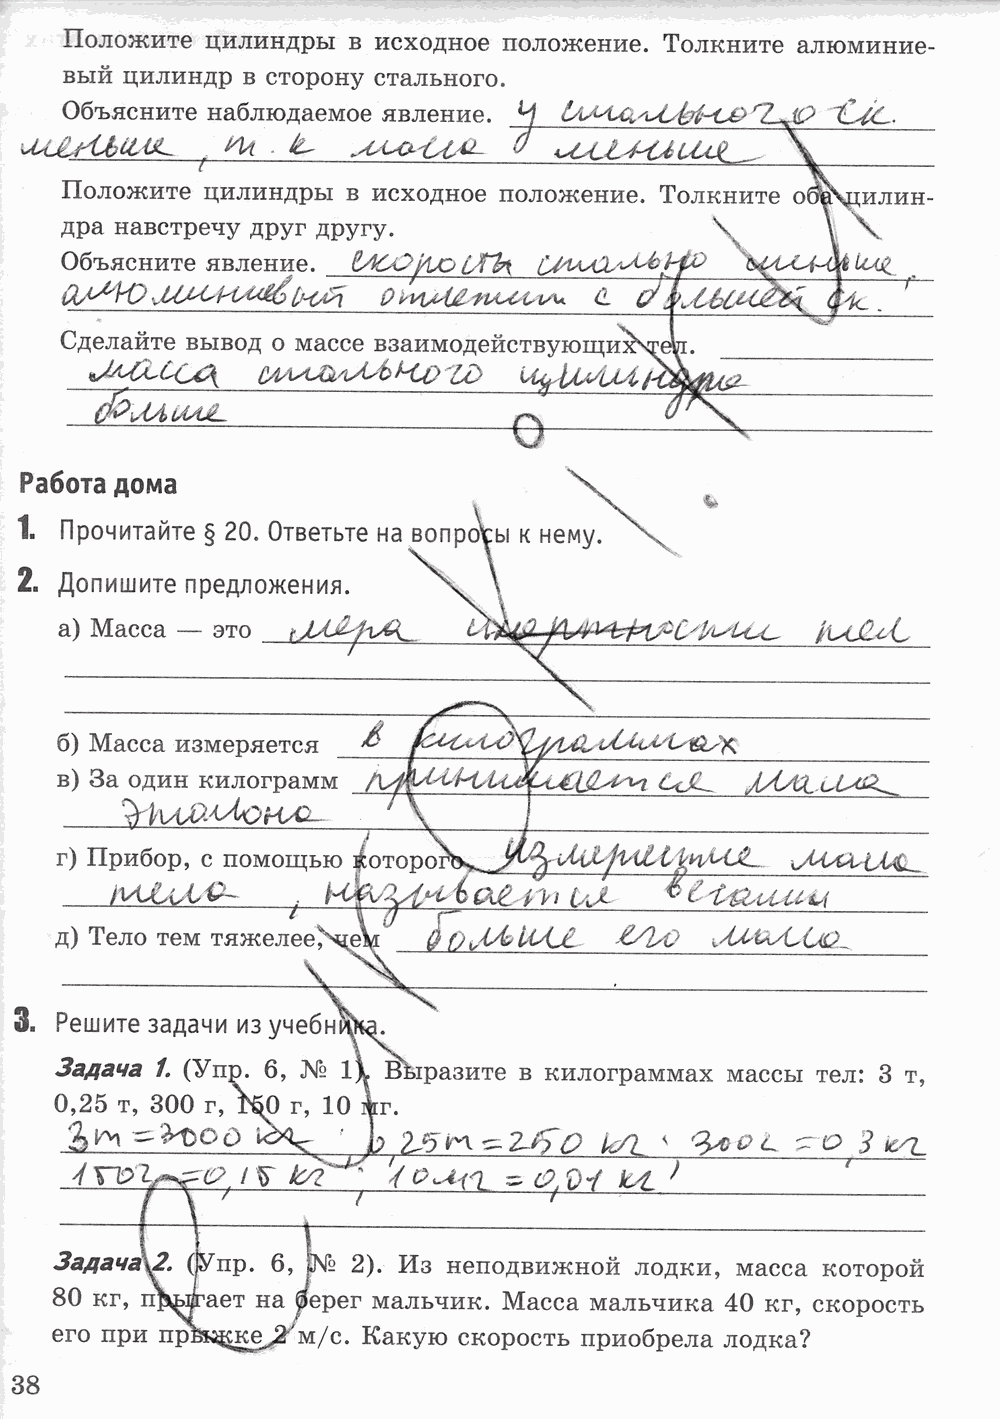 Положите цилиндры в исходное положение. Толкните алюминие-
вый цилиндр в сторону стального.
Объясните наблюдаемое явление. у стального ск.
меньше, т.к масса меньше
Положите цилиндры в исходное положение. Толкните оба цилин-
дра навстречу друг другу.
Объясните явление. скорость стально меньше,
алюминиевый отлетит с большей ск.
Сделайте вывод о массе взаимодействующих тел.
масса стального цилиндра
больше
Работа дома
1. Прочитайте § 20. Ответьте на вопросы к нему.
2. Допишите предложения.
а) Масса — это мера инертности тел
б) Масса измеряется в килограммах
в) За один килограмм принимается масса
эталона
г) Прибор, с помощью которого измеряется масса
тела, называется весами
д) Тело тем тяжелее, чем больше его масса
3. Решите задачи из учебника.
Задача 1. (Упр. 6, № 1). Выразите в килограммах массы тел: 3 т,
0,25 т, 300 г, 150 г, 10 мг.
3т = 3000 кг; 0,25т = 250 кг; 300г = 0,3 кг
150г = 0,15 кг; 10мг = 0,01 кг
Задача 2. (Упр. 6, № 2). Из неподвижной лодки, масса которой
80 кг, прыгает на берег мальчик. Масса мальчика 40 кг, скорость
его при прыжке 2 м/с. Какую скорость приобрела лодка?
38